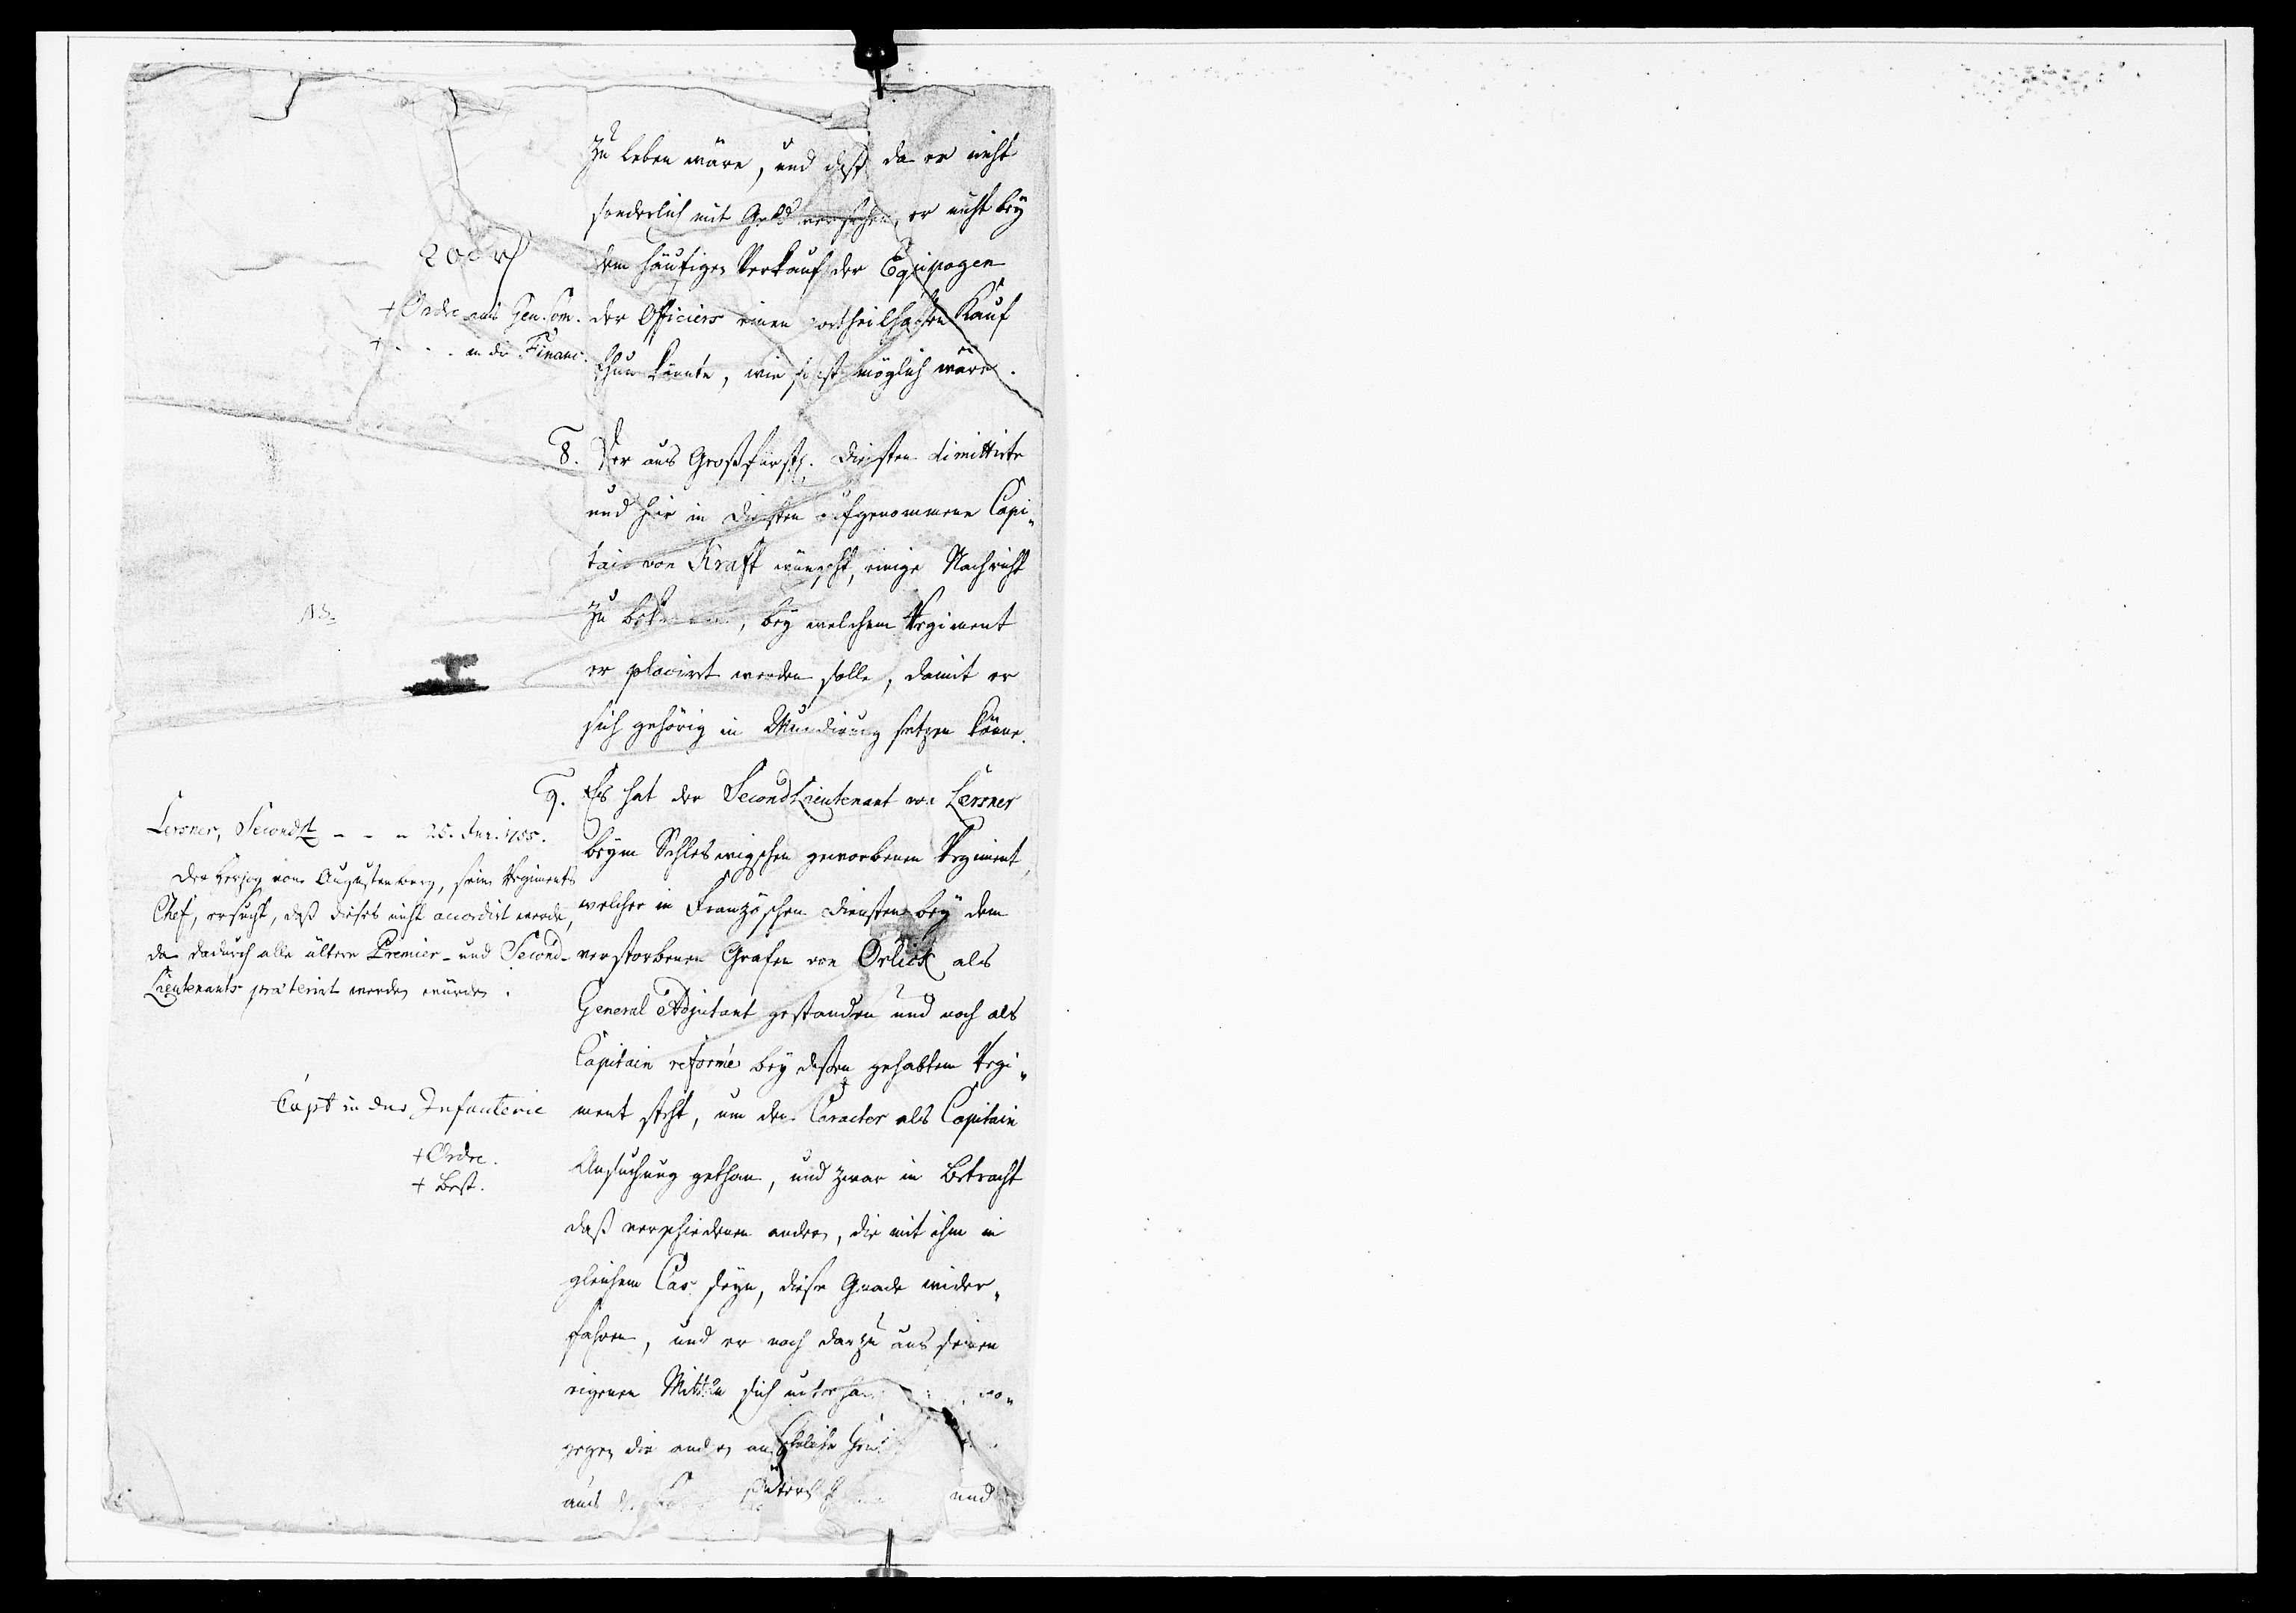 zu leben wäre, und daß da er nicht
sonderlich mit Geld versehen, er nicht bey
dem häufigen Verkauf der Equipagen
der Officiers einen vortheilhaften Kauf
thun könnte, wie sonst möglich wäre.
200 rh
+ Ordre ans Gen. Com.
+ - - - an die Financ.
8. Der aus Großfürstl. Diensten dimittirte
und hier in Diensten aufgenommene Capi„
tain von Kraft wünscht, einige Nachricht
zu bekommen, bey welchem Regiment
er placirt werden solle, damit er
sich gehörig in Mundirung setzen könne.
NB
9. Es hat der SecondLieutenant von Lersner
beym Schleswigschen geworbenen Regiment,
welcher in Französchen Diensten bey dem
verstorbenen Grafen von Orlick als
General Adjutant gestanden und noch als
Capitain reformé bey deßen gehabtem Regi„
ment steht, um den Caracter als Capitain
Ansuchung gethan, und zwar in Betracht
daß verschiedenen andern, die mit ihm in
gleichem Cas seyn, diese Gnade wider„
fahren, und er noch darzu aus seinen
eigenen Mitteln sich unterhal wo„
gegen die andern ansehnliche
aus und
Lersner, Secondlt - - - 25. Jun. 1755.
Der Herzog von Augustenburg, sein Regiments
Chef, ersucht, daß dieses nicht accordirt werde,
da dadurch alle ältere Premier- und Second-
Lieutenants præterirt werden würden.
Capt in der Infanterie
+ Ordre.
+ Best.